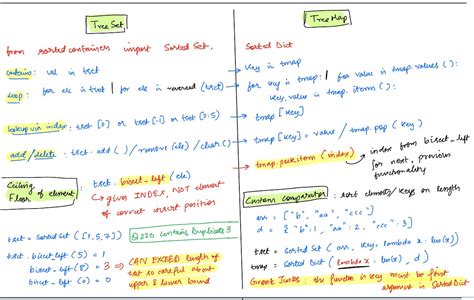 TreeSet
from sortedcontainers import SortedSet,
contains: val in tset
loop: for ele in tset / for ele in reversed (tset)
lookup via index: tset [0] or tset [-1] or tset [2:5]
add/delete: tset.add ( ) / remove (ele) / clear ( )
Ceiling
Floor of element: tset. bisect_left (ele)
→ gives INDEX, NOT element
of correct insert position
Q220 Contains Duplicate 3
tset = SortedSet ([1,5,7])
tset. bisect_left (5) = 1
bisect_left (8) = 3 ⇒ CAN EXCEED length of
tset so careful about
upper & lower bound
TreeMap
Sorted Dict
key in tmap
for key in tmap: / for value in tmap.values ( ):
key, value in tmap. items ( ):
tmap [key]
tmap [key] = value / tmap. pop (key)
tmap. peekitem (index)
index from bisect_left
for next, previous
functionality
Custom comparator: sort elements/keys on length
arr = ["b", "aa", "ccc"]
d = {"b":1, "aa":2, "ccc":3}
tset = Sorted Set (arr, key = lambda x: len(x))
tmap = Sorted Dict (lambda x: len(x), d)
the function key must be first
argument in SortedDict